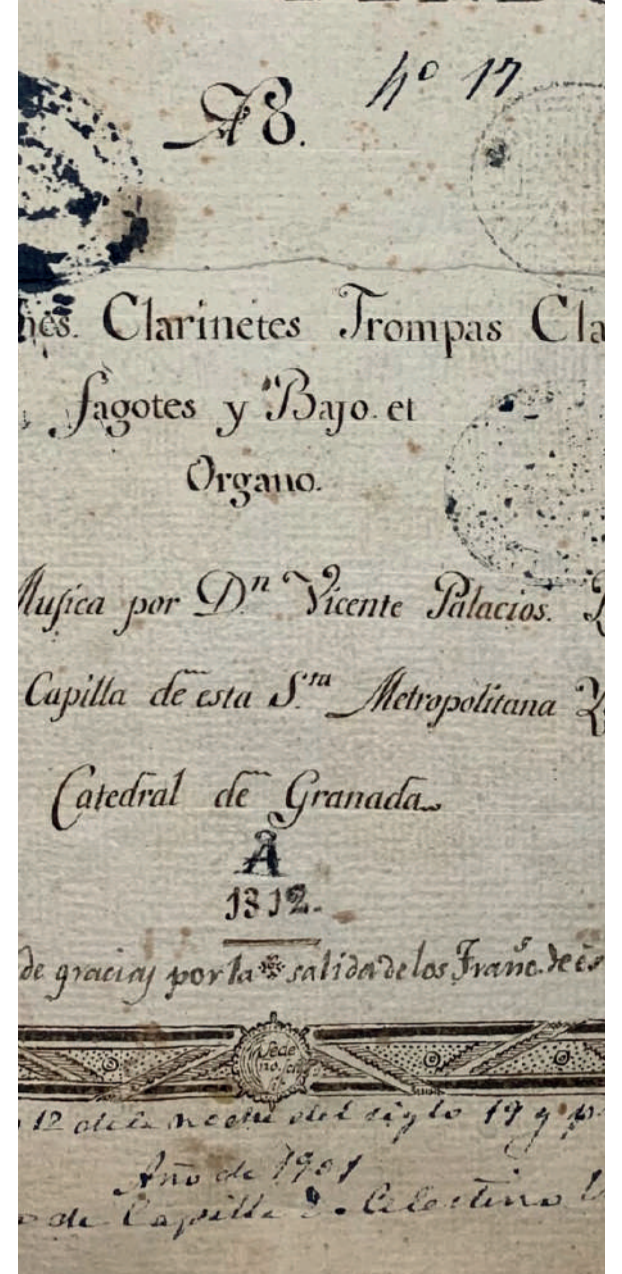 A 8.
nº 17
nes. Clarinetes Trompas Cla
fagotes y Bajo. et
Organo.
Musica por D.ⁿ Vicente Palacios.
Capilla de esta S.ᵗᵃ Metropolitana
Catedral de Granada
A
1812.
de gracias por la salida de los Franc.ˢ de es
12 de la noche del siglo 19 y p
Año de 1901
o de Capilla D. Celestino